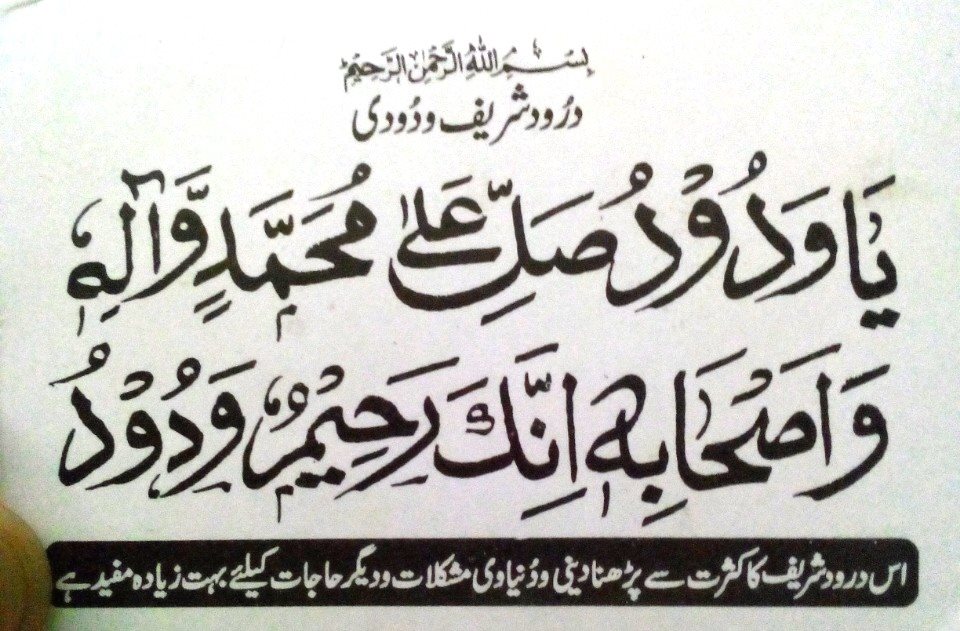 بِسْمِ اللهِ الرَّحْمٰنِ الرَّحِيْمِ
درُود شریف ودُودی
يَا وَدُوْدُ صَلِّ عَلىٰ مُحَمَّدٍ وَّآلِهٖ
وَاَصْحَابِهٖ اِنَّكَ رَحِيْمٌ وَدُوْدُ
اس درود شریف کا کثرت سے پڑھنا دینی و دُنیاوی مشکلات و دیگر حاجات کیلئے بہت زیادہ مفید ہے